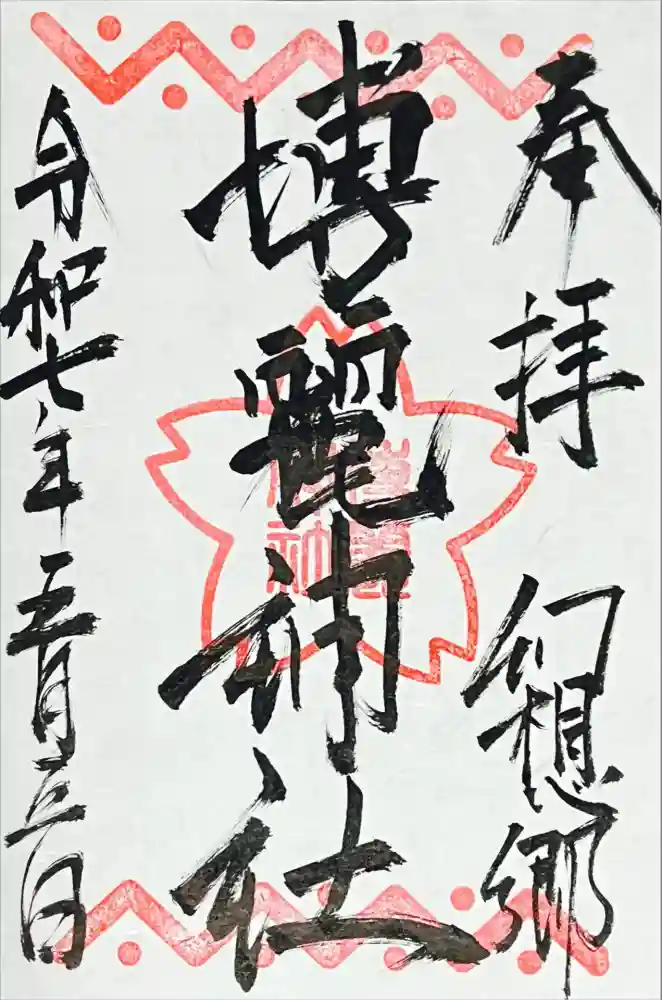 奉拝　幻想郷
博麗神社
令和七年五月三日